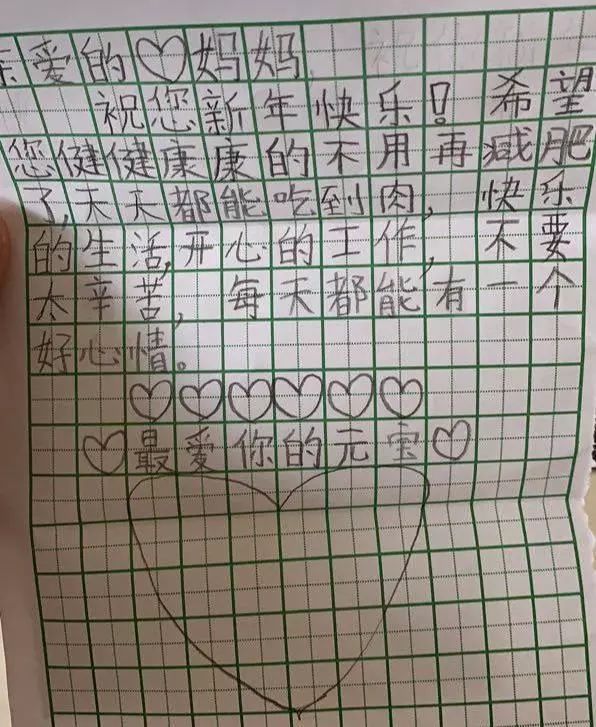 亲爱的♡妈妈
祝您新年快乐！希望
您健健康康的不用再减肥
了,天天都能吃到肉,快乐
的生活,开心的工作,不要
太辛苦,每天都能有一个
好心情。
♡♡♡♡♡♡
♡最爱你的元宝♡